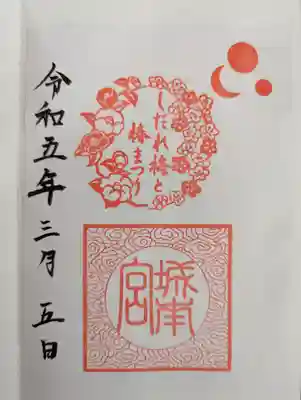 しだれ梅と
椿まつり
城南宮
令和五年三月五日